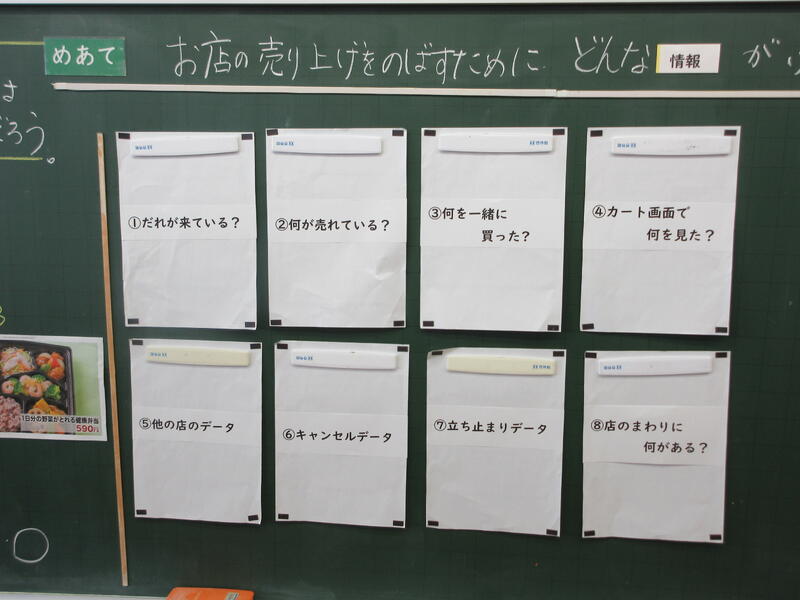 めあて
お店の売り上げをのばすために どんな 情報 が
は
だろう。
①だれが来ている？
②何が売れている？
③何を一緒に
買った？
④カート画面で
何を見た？
1日分の野菜がとれる健康弁当
590円
⑤他の店のデータ
⑥キャンセルデータ
⑦立ち止まりデータ
⑧店のまわりに
何がある？